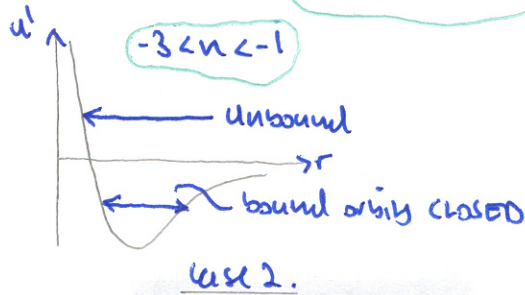 u'
-3 < n < -1
unbound
r
bound orbits CLOSED
case 2.